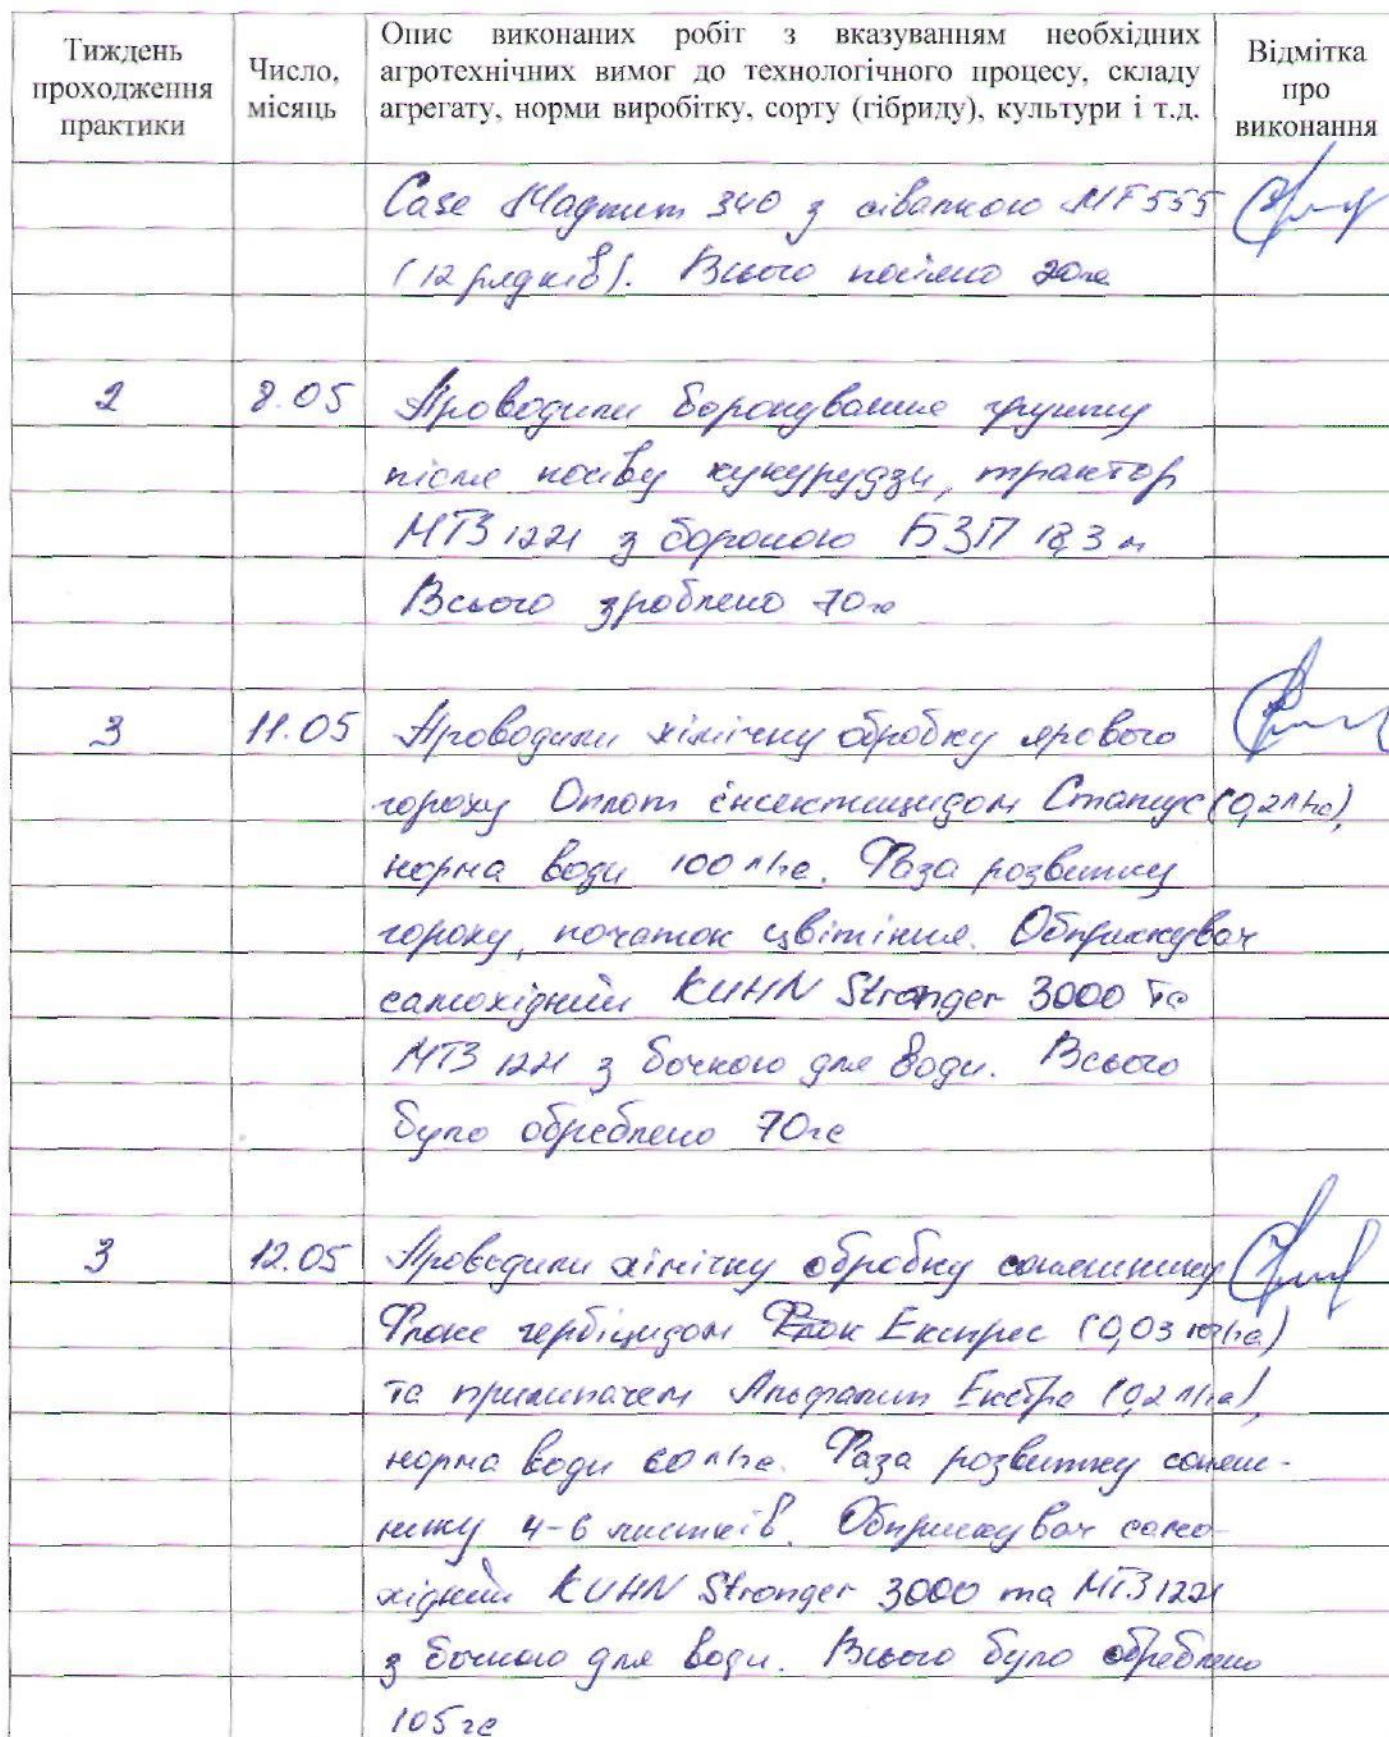 Тиждень проходження практики
Число, місяць
Опис виконаних робіт з вказуванням необхідних
агротехнічних вимог до технологічного процесу, складу
агрегату, норми виробітку, сорту (гібриду), культури і т.д.
Відмітка про виконання
Case Magnum 340 з сівалкою MF555
(12 рядків). Всього посіяно 20га
2 8.05 Проводили боронування грунту
після посіву кукурудзи, трактор
МТЗ 1221 з бороною БЗП 18,3 м
Всього зроблено 70га
3 11.05 Проводили хімічну обробку ярового
гороху Оплот інсектицидом Статус (0,2л/га),
норма води 100 л/га. Фаза розвитку
гороху, початок цвітіння. Обприскувач
самохідний KUHN Stronger 3000 та
МТЗ 1221 з бочкою для води. Всього
було обреблено 70га
3 12.05 Проводили хімічну обробку соняшнику
гербіцидом Експрес (0,03 кг/га)
та прилипачем Альфалип Екстра (0,2 л/га),
норма води 60 л/га. Фаза розвитку соняш-
нику 4-6 листків. Обприскувач само-
хідний KUHN Stronger 3000 та МТЗ 1221
з бочкою для води. Всього було обреблено
105 га